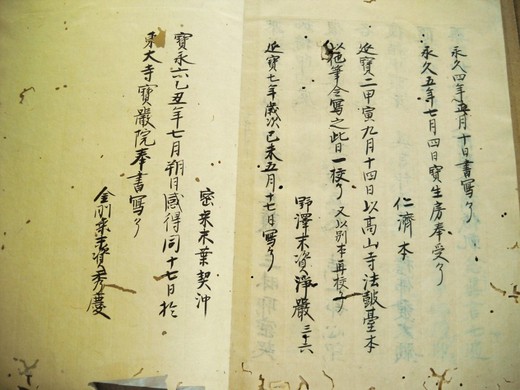 永久四年五月十日書寫了
永久五年七月四日寶生房奉受了
仁濟本
延寶二甲寅九月十四日以高山寺法皷臺本
以他筆令寫之此日一校了 又以別本再校了
野澤末資淨嚴三十六
延寶七年歳次己未五月十七日寫了
密乘末葉契沖
寶永六己丑年七月朔日感得同十七日於
東大寺寶嚴院奉書寫了
金剛乘末資秀慶